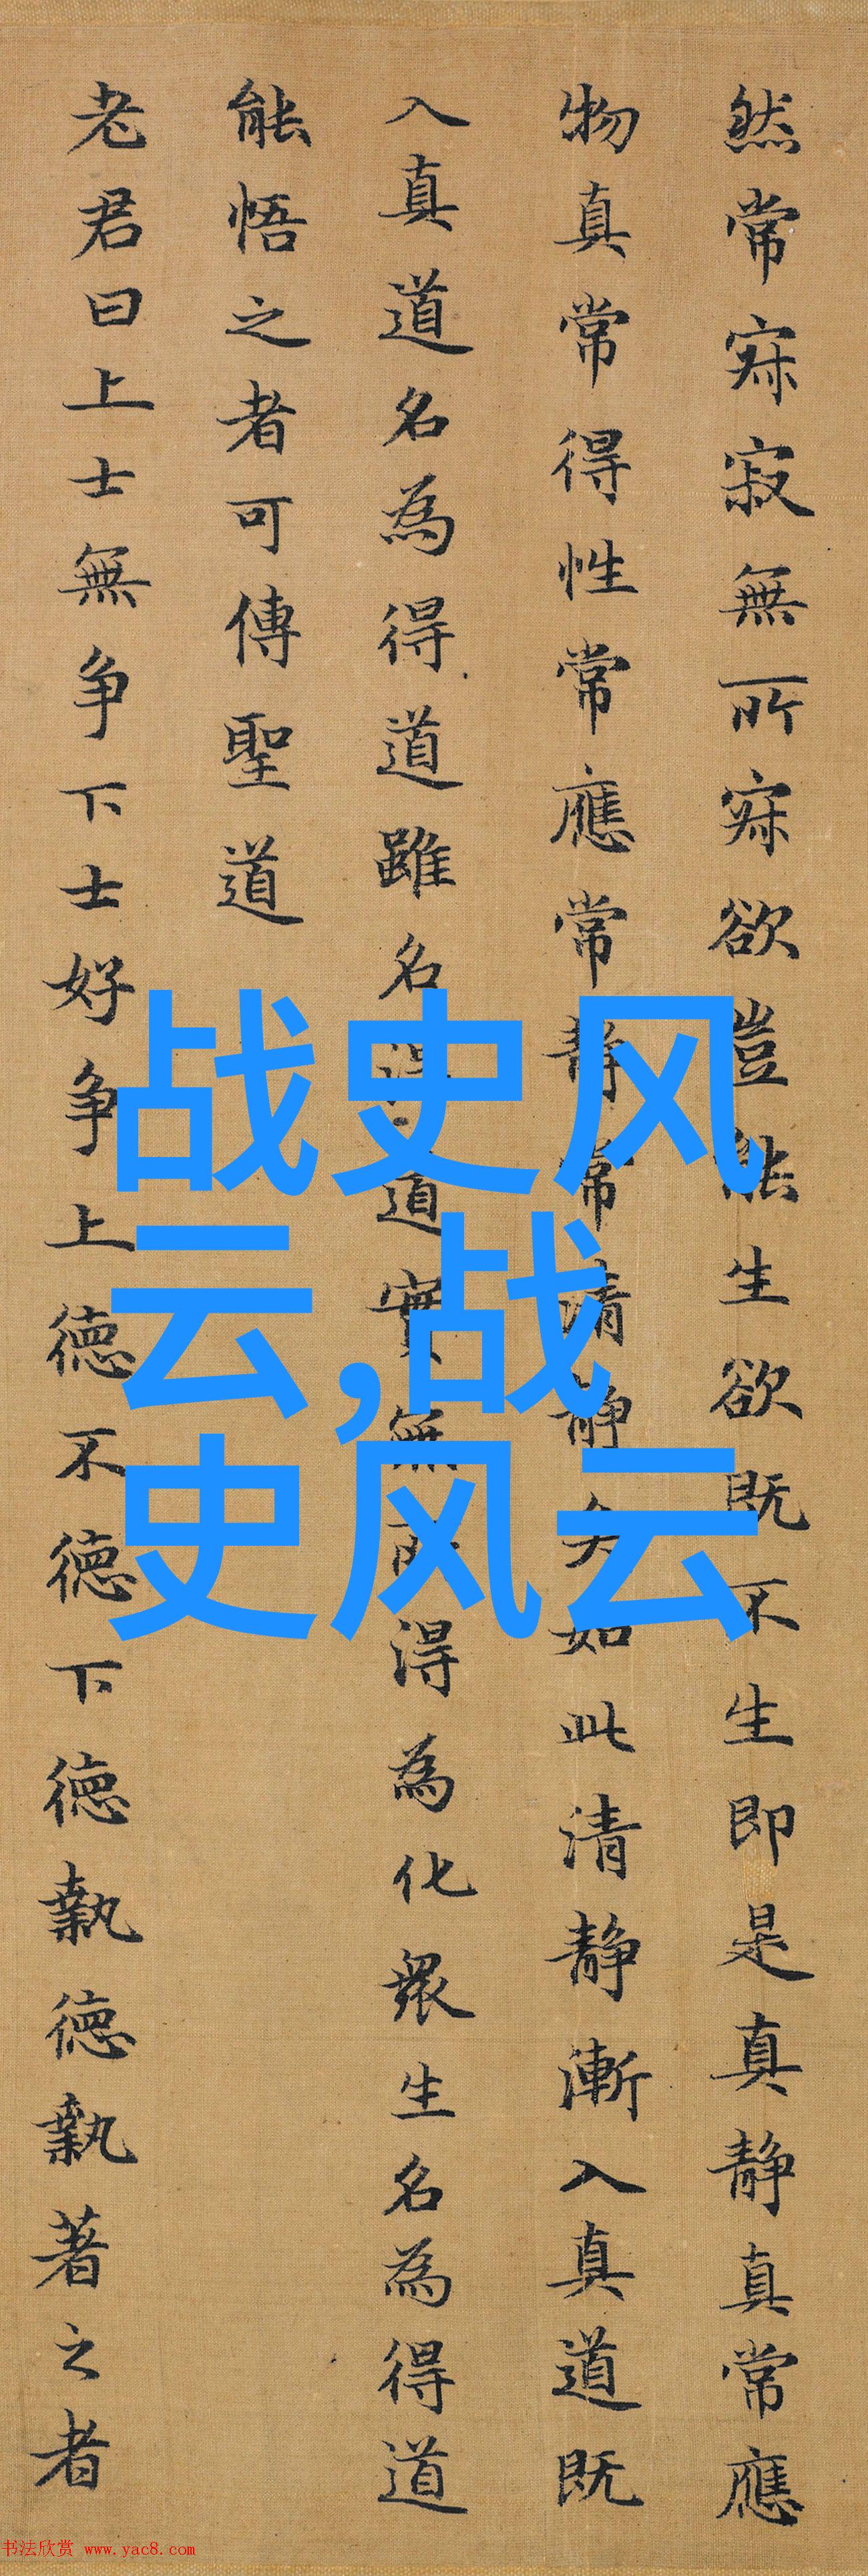 然常寂寂無所寂欲豈能生欲既不生即是真静真常應
物真常得性常應常静常清静矣如此清静漸入真道既
入真道名為得道雖名得道實無所得為化衆生名為得道
能悟之者可傳聖道
老君曰上士無争下士好争上德不德下德執德執著之者
战史风
云,战
史风云
书法欣赏 www.yac8.com